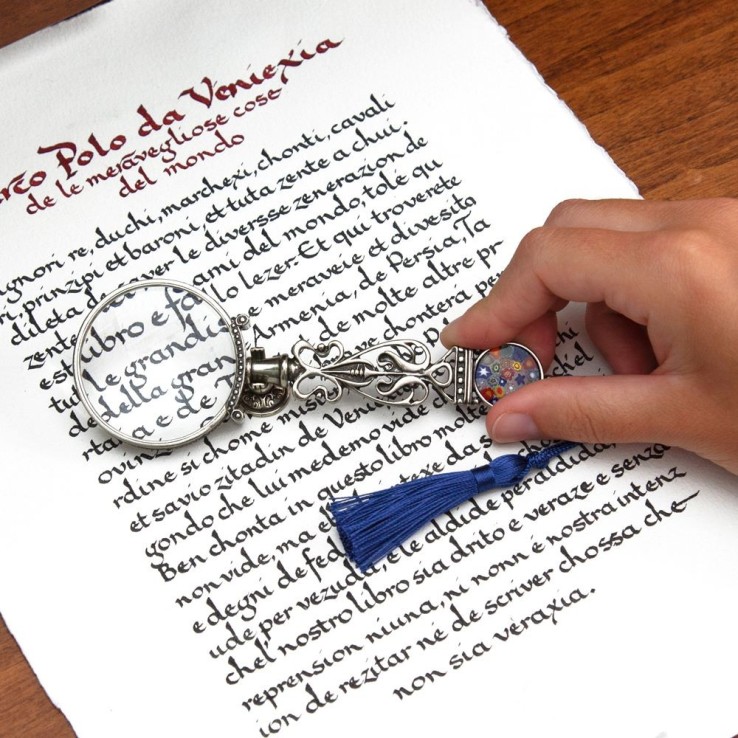 Polo da Veniexia
de le meravegliose cose
del mondo
re, duchi, marchexi, chonti, cavali
prinzipi et baroni, et tuta zente a chui.
dileta de saver le diversse zenerazion de
zente ami del mondo, tolé qu
est libro e fa lo lezer. Et qui troverete
tu le grandis e meraveie et divesita
de della gran Armenia, de Persia, Ta
rtaria e de T de molte altre pr
ovinz ve chonterà per
rdine si chome
et savio zitadin de Venie
gondo che lui medemo vide
Ben chonta in questo libro molte
non vide, ma e texe da
e degni de fed
ude per vezuda, e le aldide per aldida,
chel' nostro libro sia drito e veraze e senza
reprension niuna, ni nonn è nostra intenz
ion de rezitar né de scriver chossa che
non sia veraxia.